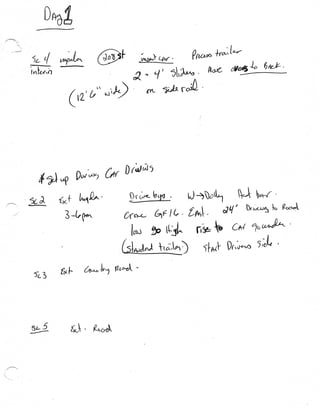 DAY 1
Sc 4 Impala 208 st insert car. Process trailer
Interior 2 - 4' Sliders. Move to Back.
(12' 6" wide) on side rail.
* Set up Driving CAR Driving
Sc 2 Ext Impala Drive bys. W → Dolly
3-6pm Crane GF16. 24' Driving to Road
low go High rise to CAR
(standard trailer) Start Drivers Side.
Sc 3 Ext Country Road -
Sc 5 Ext. Road